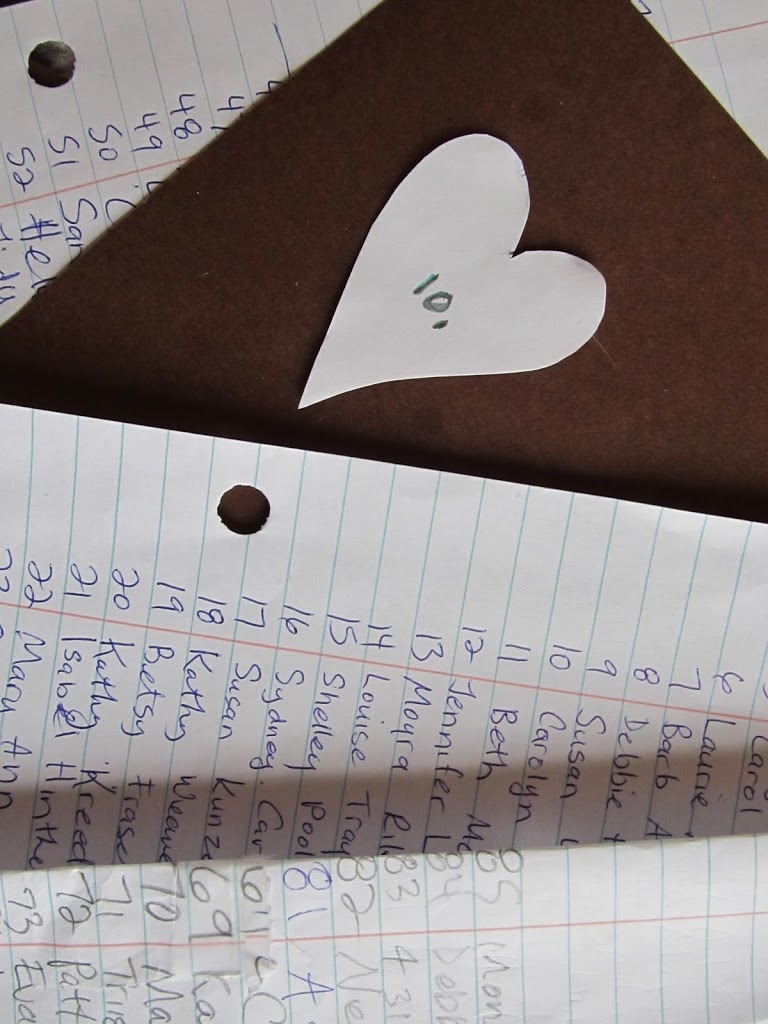 48
49
50
51 San
52 Hel
10.
Carol
6 Laurie
7 Barb A
8 Debbie
9 Susan
10 Carolyn
11 Beth Mc
12 Jennifer L
13 Moyra
14 Louise Tra
15 Shelley Pool
16 Sydney Car
17 Susan Kunze
18 Kathy Weave
19 Betsy Frase
20 Kathy Kreed
21 Isabel Hinthe
22 Mary Ann
85 Mon
84 Debb
83
82 Ne
81 A
69 Ka
70 Ma
71 Tris
72 Patt
73 Eva